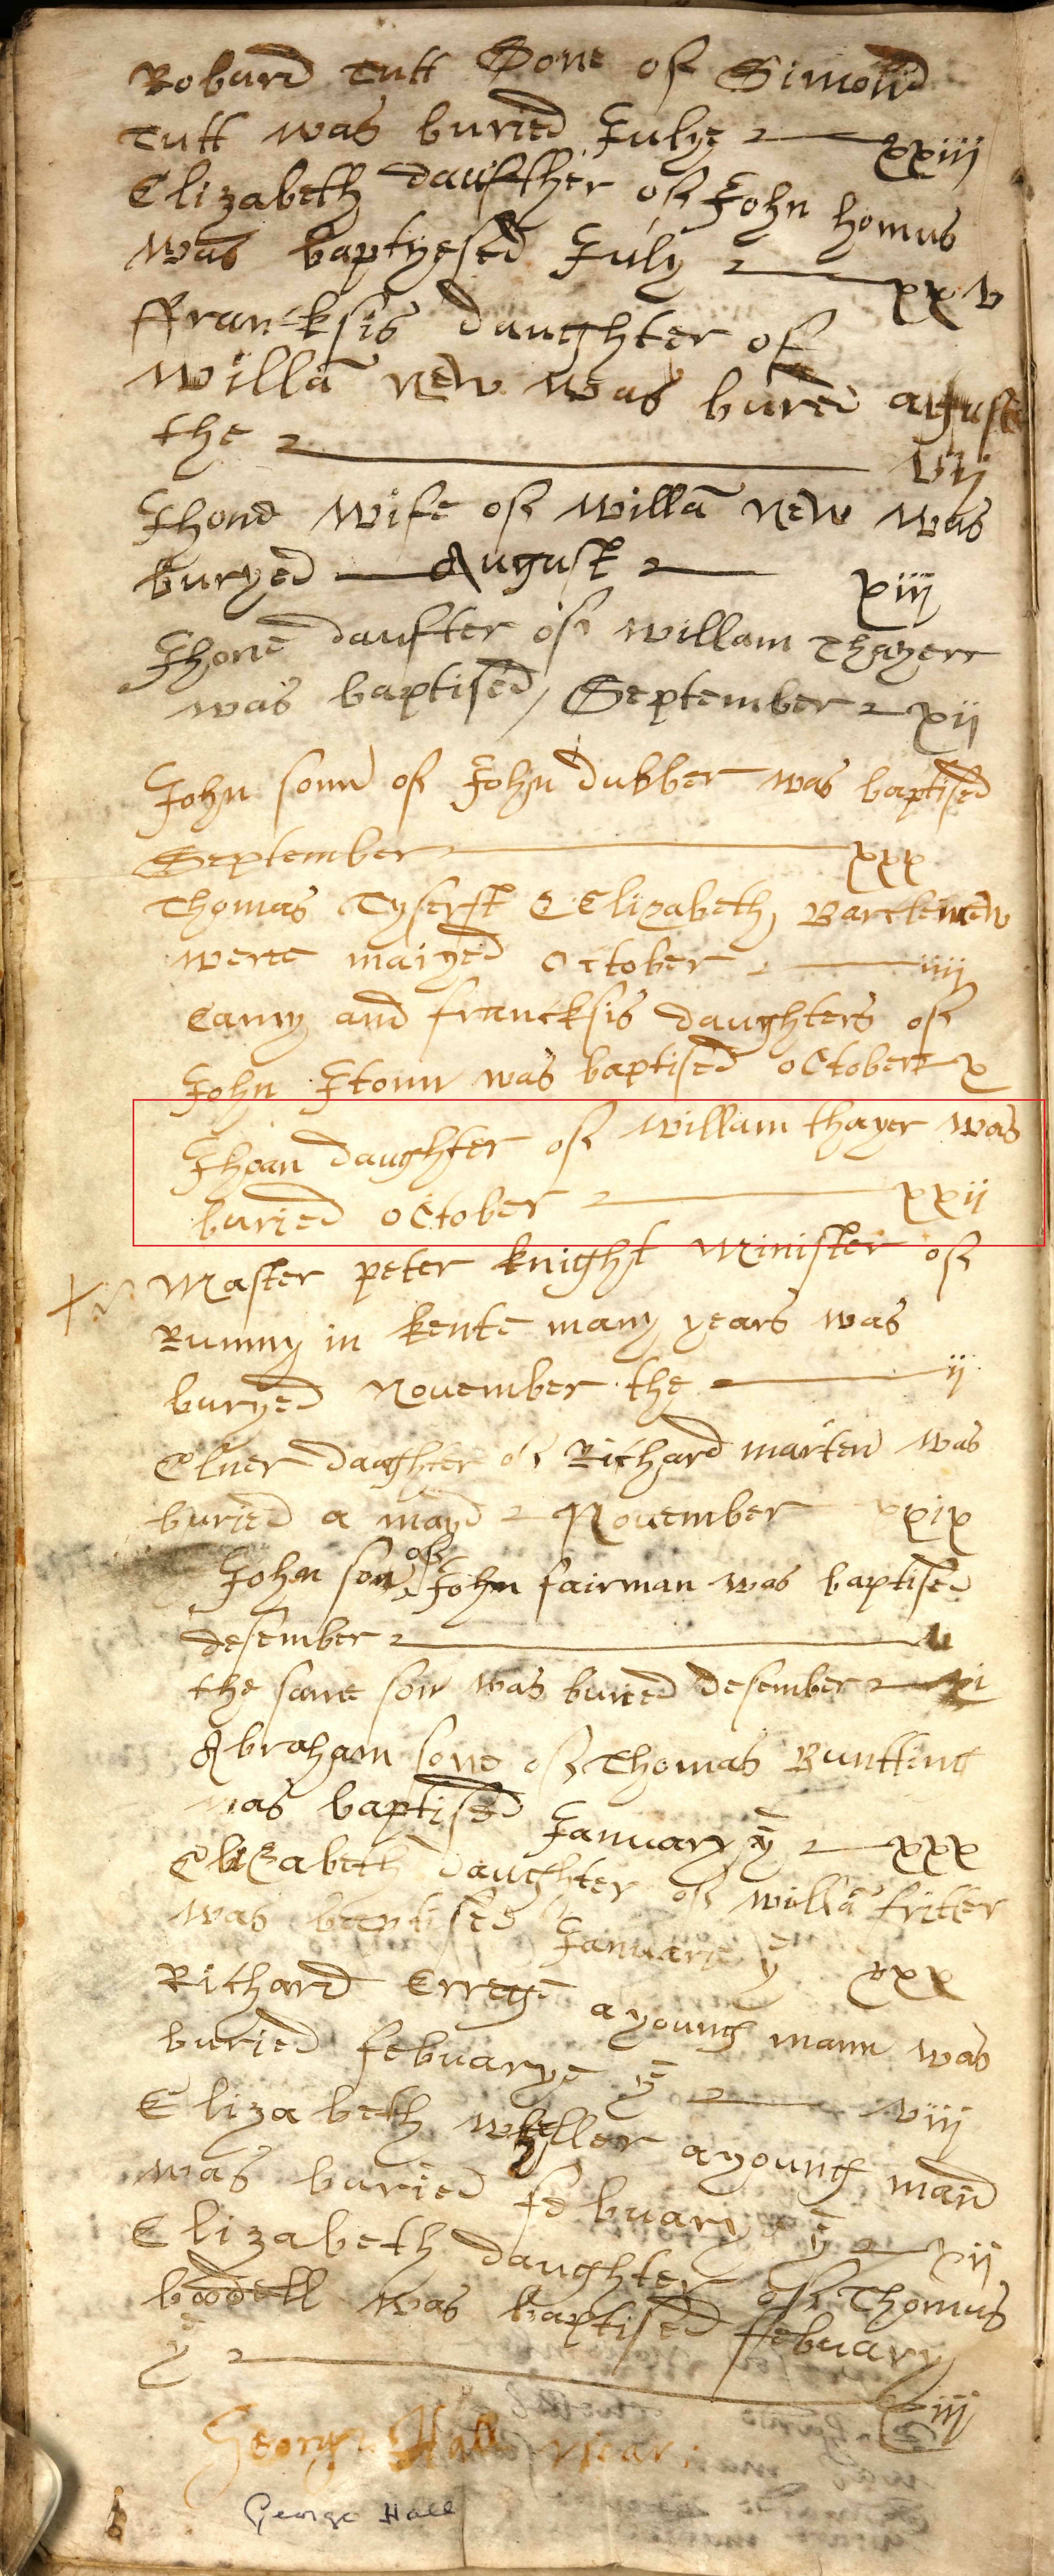 Robard Tutt Sone of Simond
Tutt was buried Julye xxiij
Elizabeth daufther of John homus
was baptyesed July xxv
ffrancksis daughter of
Willã new was bured august
the vij
Jhone wife of willã new was
buryed August xiij
Jhone daufter of willam Thayerr
was baptised September xij
John sonn of John dubber was baptised
September xxx
Thomas Tyserst & Elizabeth Bartlemew
were maryed October iiij
Camy and francksis daughters of
John Stonn was baptised October x
Jhoan daughter of willam thayer was
buried October xxij
Master peter knight Minister of
Rumny in kente many years was
buryed November the ij
Elner daughter of Richard marten was
buried a mayd November xxix
John son of John fairman was baptised
desember
the same son was buried desember xi
Abraham sone of Thomas Buntting
was baptised January ye xxx
Elizabeth daughter of willã fritter
was baptised Januarie ye xxx
Richard Errege a young mann was
buried februarye ye viij
Elizabeth weller a young maid
was buried februarye ye xij
Elizabeth daughter of Thomus
boodell was baptised february
ye xiij
George Hall vicar
George Hall